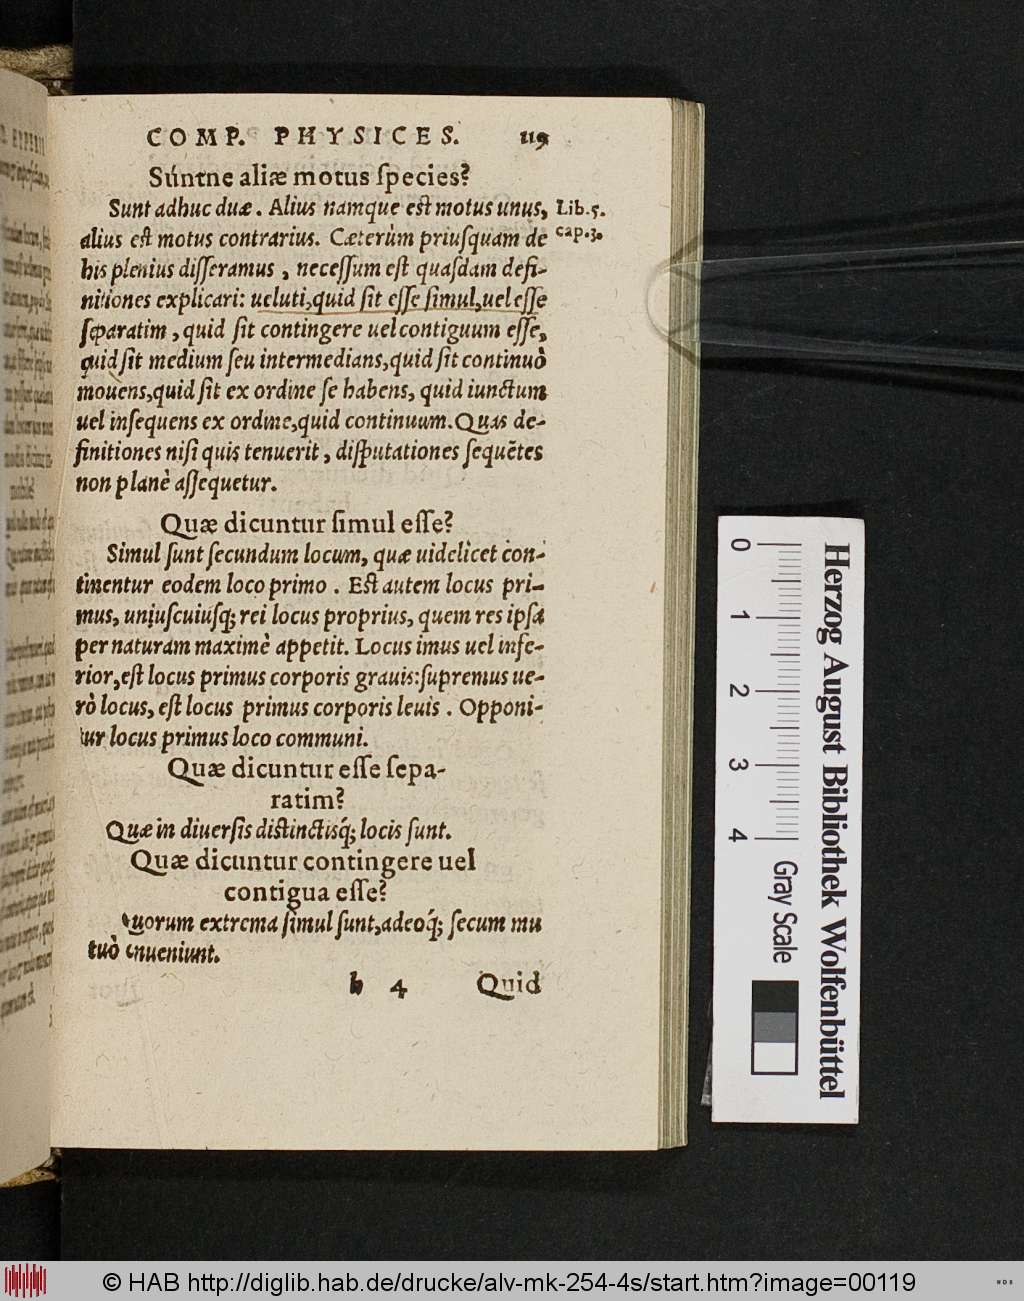 COMP. PHYSICES. 119
Súntne aliæ motus ſpecies?
Sunt adhuc duæ. Alius namque eſt motus unus, Lib.5.
alius eſt motus contrarius. Cæterùm priuſquam de cap.3.
his plenius diſſeramus, neceſſum eſt quaſdam defi-
nitiones explicari: ueluti,quid ſit eſſe ſimul,uel eſſe
ſeparatim, quid ſit contingere uel contiguum eſſe,
quid ſit medium ſeu intermedians,quid ſit continuò
mouens,quid ſit ex ordine ſe habens, quid iunctum
uel inſequens ex ordine,quid continuum. Quas de-
finitiones niſi quis tenuerit, diſputationes ſequẽtes
non planè aſſequetur.
Quæ dicuntur ſimul eſſe?
Simul ſunt ſecundum locum, quæ uidelicet con-
tinentur eodem loco primo. Eſt autem locus pri-
mus, uniuſcuiuſq; rei locus proprius, quem res ipſa
per naturam maximè appetit. Locus imus uel infe-
rior,eſt locus primus corporis grauis:ſupremus ue-
rò locus, eſt locus primus corporis leuis. Opponi-
tur locus primus loco communi.
Quæ dicuntur eſſe ſepa-
ratim?
Quæ in diuerſis diſtinctisq́; locis ſunt.
Quæ dicuntur contingere uel
contigua eſſe?
Quorum extrema ſimul ſunt,adeoq́; ſecum mu
tuò
h 4 Quid
0 1 2 3 4
Gray Scale
Herzog August Bibliothek Wolfenbüttel
© HAB http://diglib.hab.de/drucke/alv-mk-254-4s/start.htm?image=00119